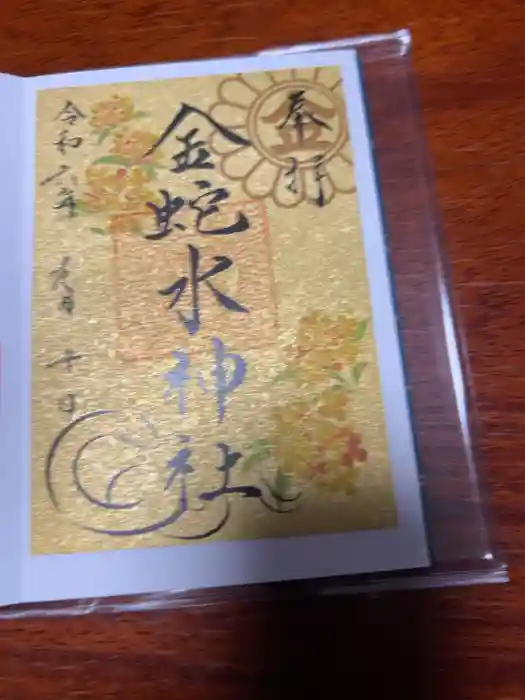 奉拝
金
金蛇水神社
令和六年 九月 廿日